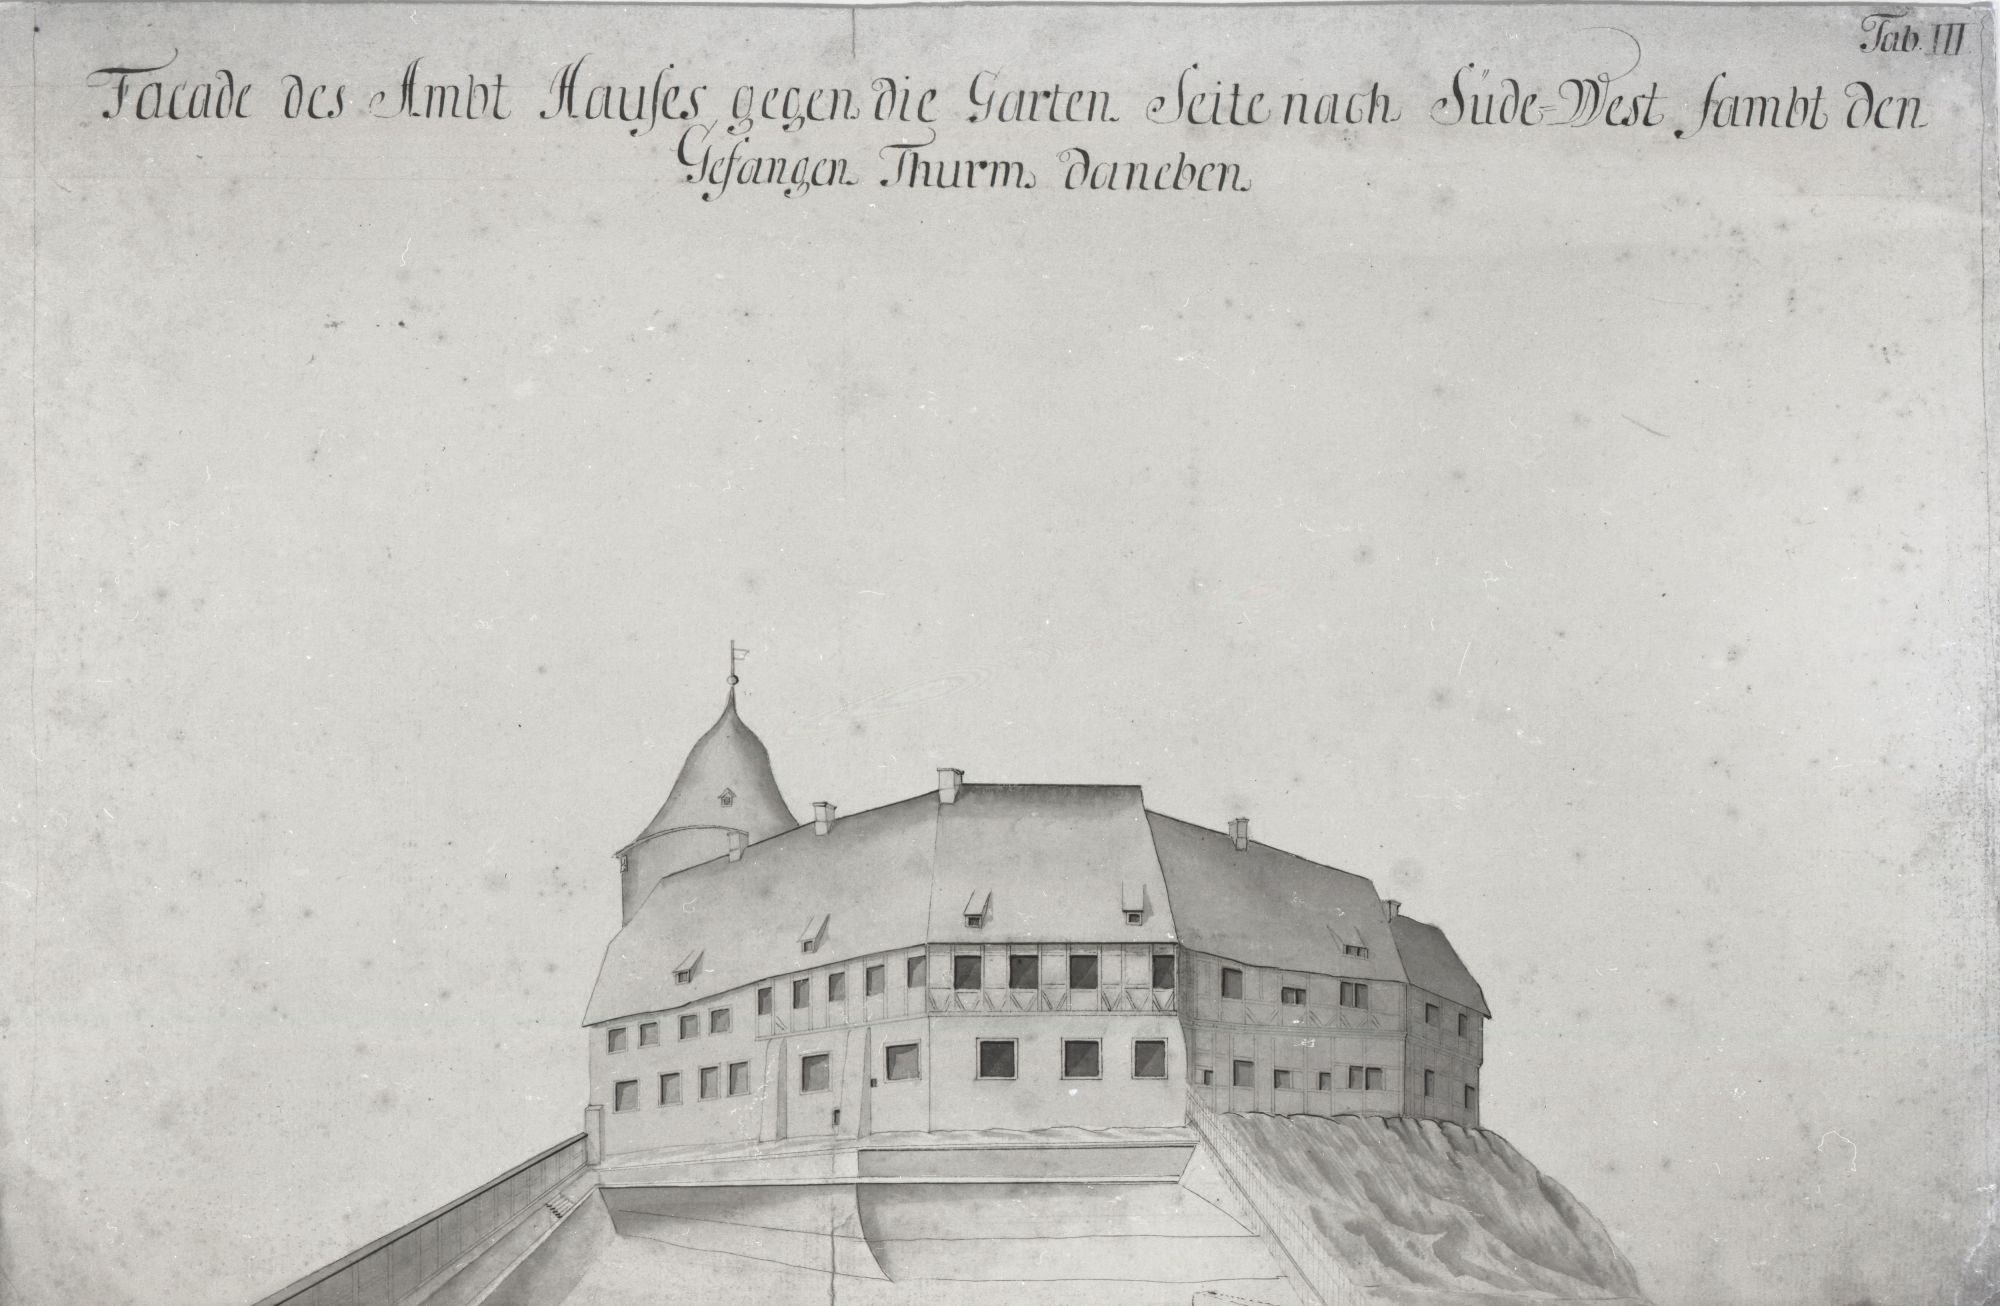 Tab. III
Facade des Ambt Hauses gegen die Garten Seite nach Süde-West sambt den
Gefangen Thurm daneben.